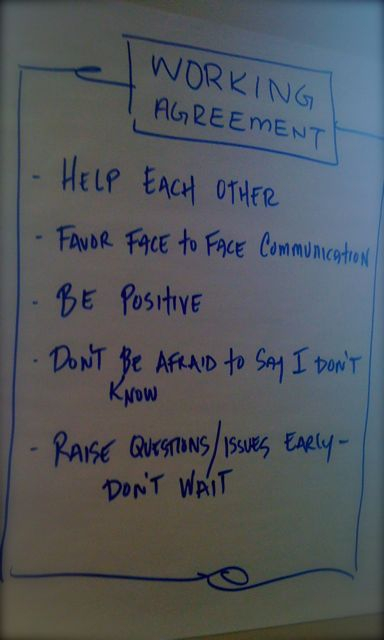 WORKING
AGREEMENT
- HELP EACH OTHER
- FAVOR FACE to FACE COMMUNICATION
- BE POSITIVE
- DON'T BE AFRAID to SAY I DON'T
KNOW
- RAISE QUESTIONS/ISSUES EARLY-
DON'T WAIT